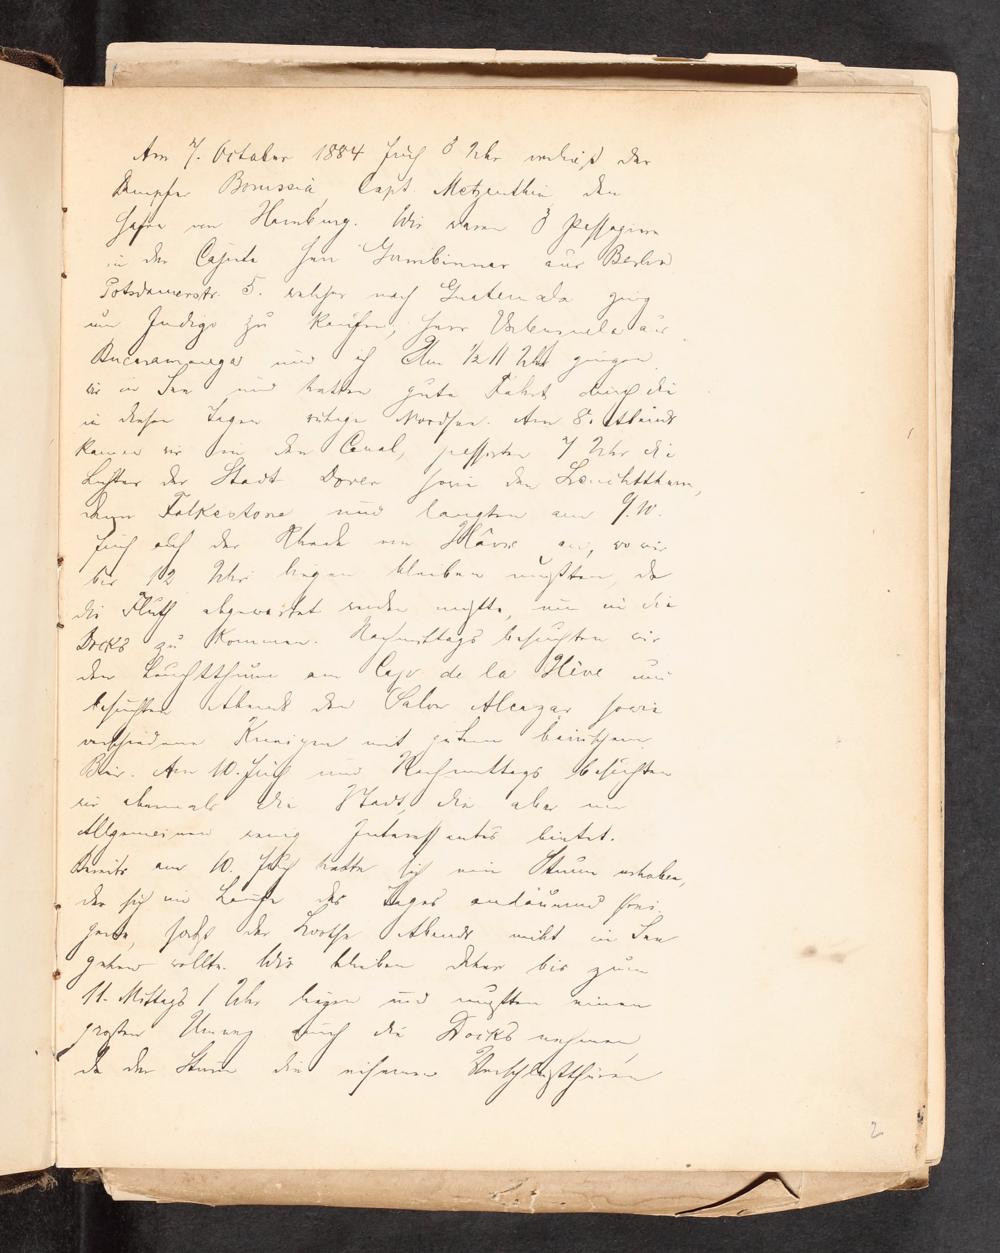 Am 7. October 1884 früh 8 Uhr verließ der
Dampfer Borussia, Capt. Metzenthin, den
Hafen von Hamburg. Wir waren 3 Passagiere
in der Cajüte Herr Gumbinner aus Berlin
Potsdamerstr. 5. welcher nach Guatemala ging
um Indigo zu kaufen, Herr Valenzuela aus
Bucaramanga und ich Um ½ 11 Uhr gingen
wir in See und hatten gute Fahrt durch die
in diesen Tagen ruhige Nordsee. Am 8. Abends
kamen wir in den Canal, passirten 7 Uhr die
Lichter der Stadt Dover sowie den Leuchtthurm,
dann Folkestone und langten am 9.10.
früh auf der Rhede von Hâvre an, wo wir
bis 12 Uhr liegen bleiben mußten, da
die Fluth abgewartet werden mußte, um in die
Docks zu kommen. Nachmittags besuchten wir
den Leuchtthurm am Cap de la Hève und
besuchten Abends den Salon Alcazar sowie
verschiedene Kneipen mit gutem bairischem
Bier. Am 10. früh und Nachmittags besuchten
wir abermals die Stadt, die aber im
Allgemeinen wenig Interessantes bietet.
Bereits am 10. früh hatte sich ein Sturm erhoben,
der sich im Laufe des Tages andauernd stei
gerte, sodß der Lootse Abends nicht in See
gehen wollte. Wir blieben daher bis zum
11. Mittags 1 Uhr liegen und mußten einen
großen Umweg durch die Docks nehmen,
da der Sturm die eisernen Verschlußthüren
2